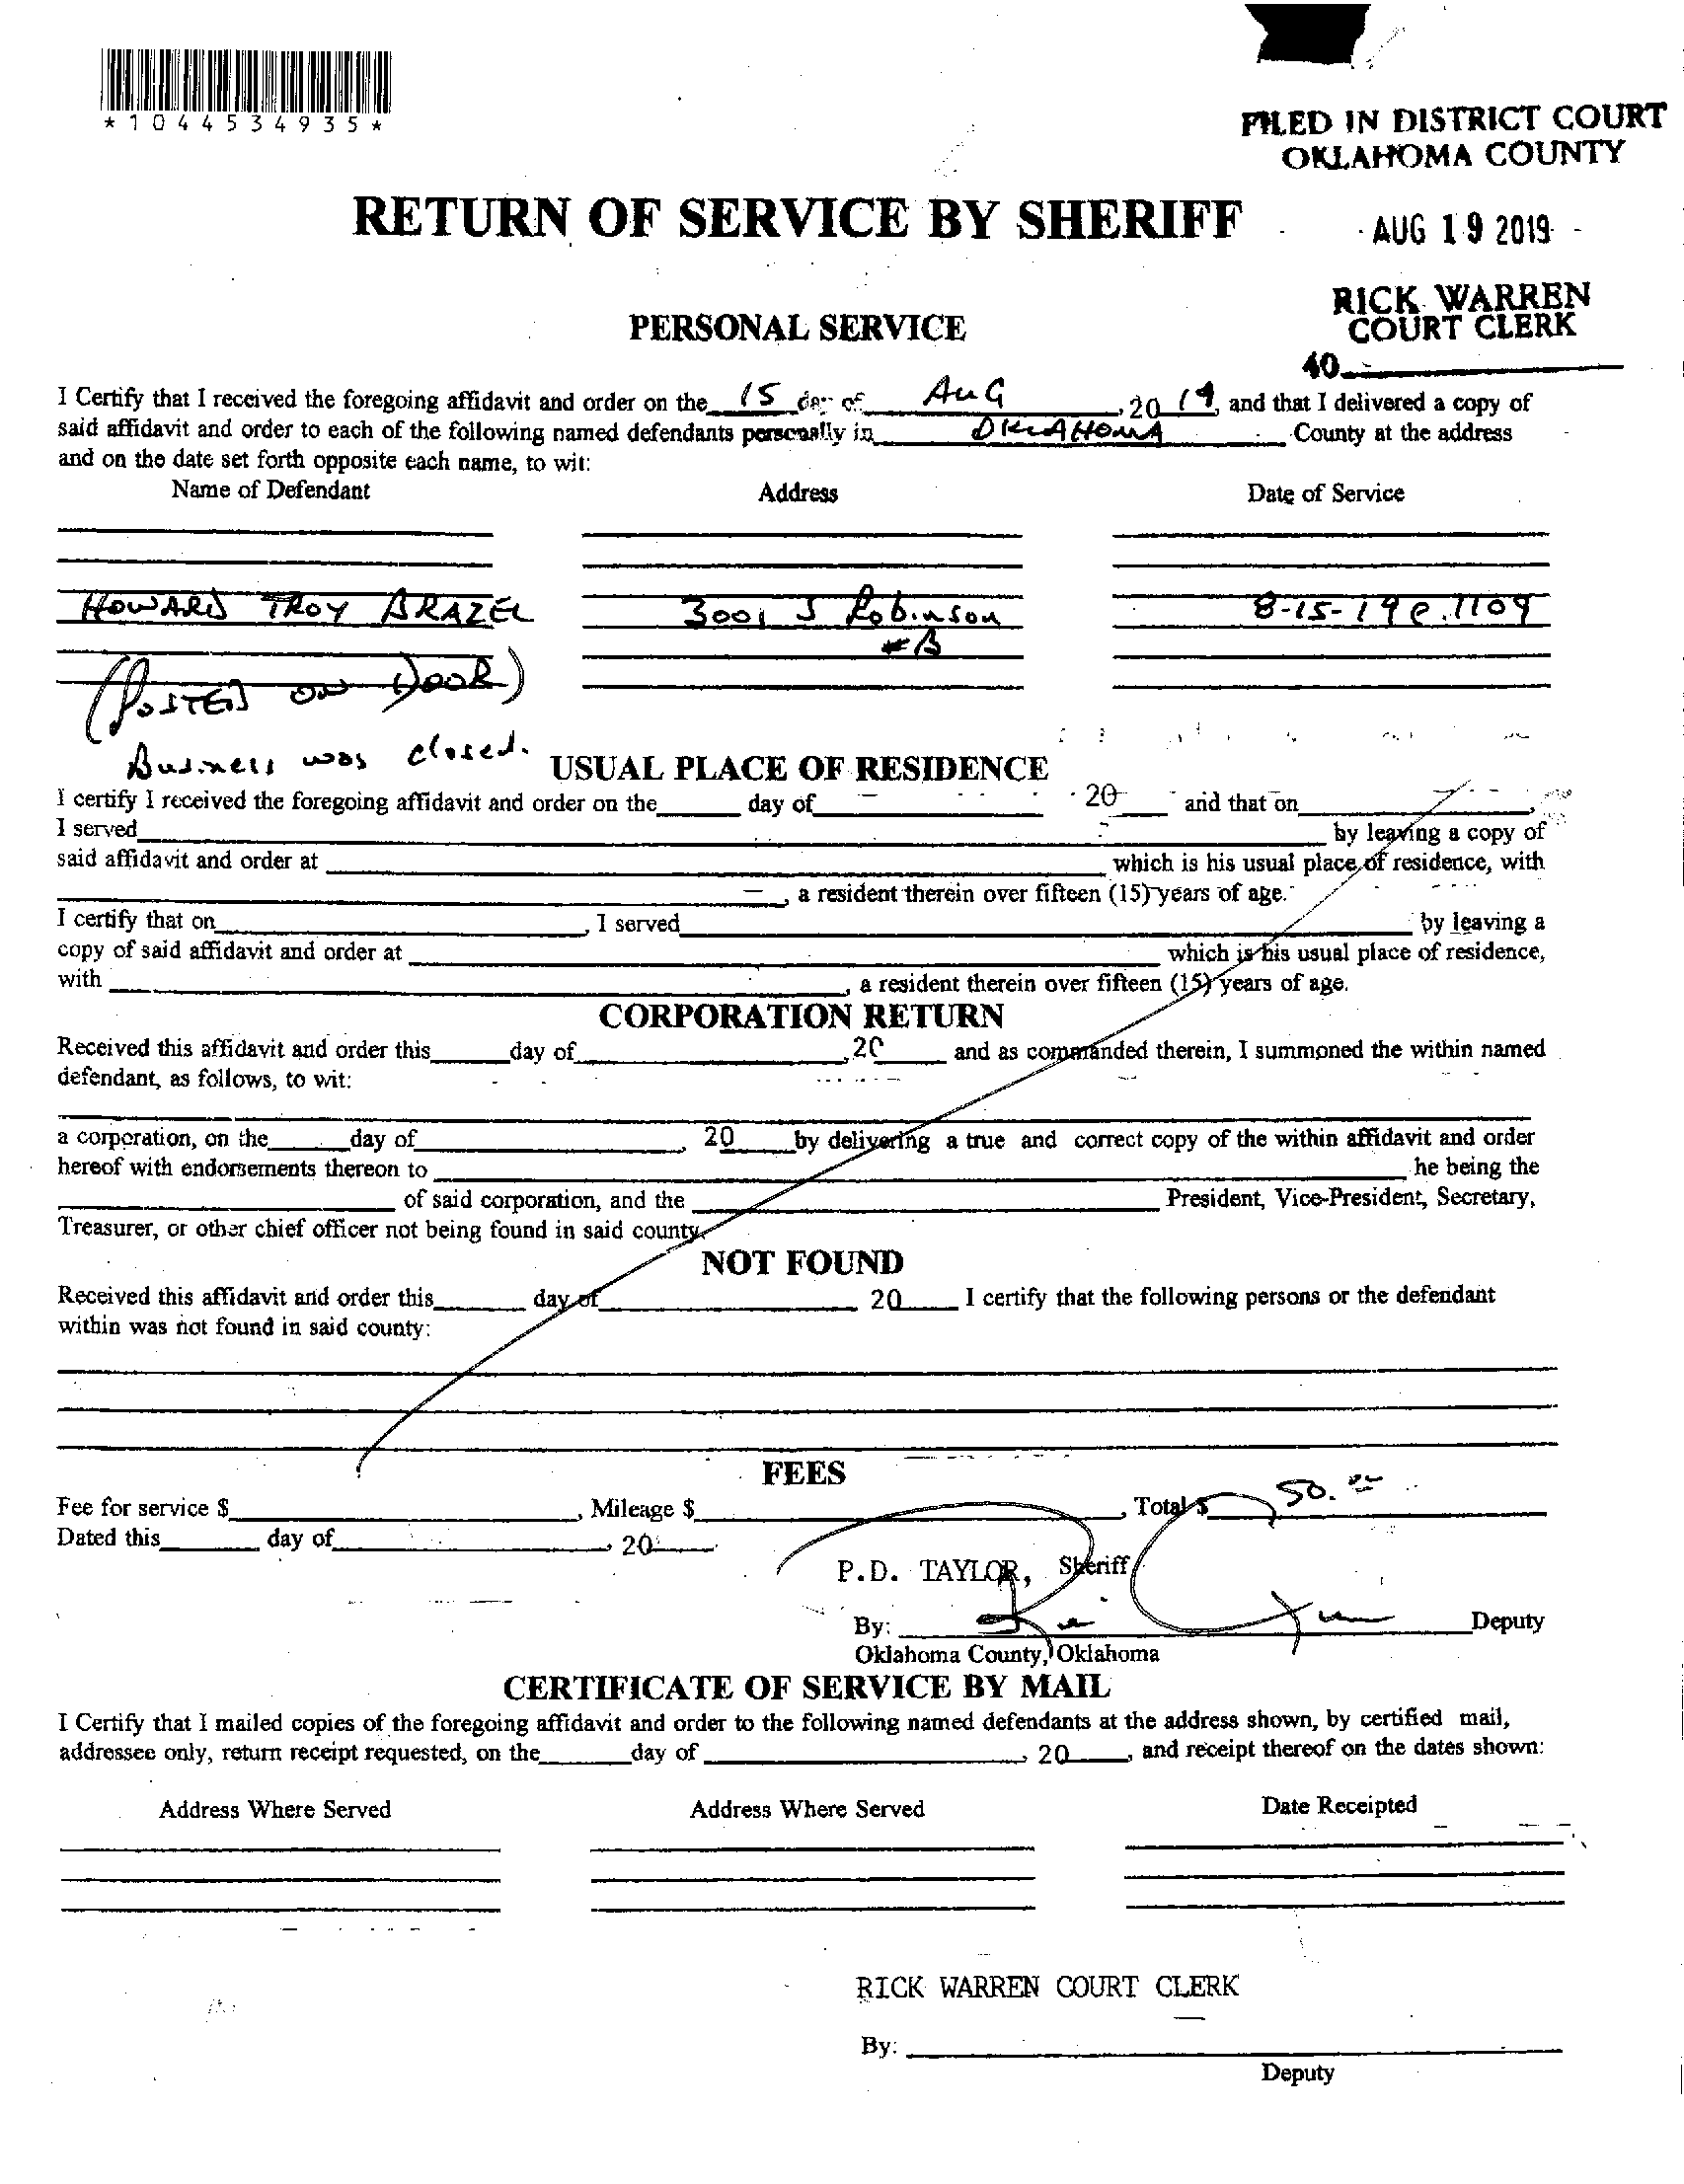 *1044534935*
FILED IN DISTRICT COURT
OKLAHOMA COUNTY
RETURN OF SERVICE BY SHERIFF
AUG 19 2019
RICK WARREN
COURT CLERK
40
PERSONAL SERVICE
I Certify that I received the foregoing affidavit and order on the 15 day of AUG, 20 19, and that I delivered a copy of
said affidavit and order to each of the following named defendants personally in OKLAHOMA County at the address
and on the date set forth opposite each name, to wit:
Name of Defendant Address Date of Service
HOWARD TROY BRAZEL 3001 S Robinson 8-15-19 @ 1109
#B
(POSTED ON DOOR)
Business was closed.
USUAL PLACE OF RESIDENCE
I certify I received the foregoing affidavit and order on the day of 20 and that on
I served by leaving a copy of
said affidavit and order at which is his usual place of residence, with
, a resident therein over fifteen (15) years of age.
I certify that on , I served by leaving a
copy of said affidavit and order at which is his usual place of residence,
with , a resident therein over fifteen (15) years of age.
CORPORATION RETURN
Received this affidavit and order this day of , 20 and as commanded therein, I summoned the within named
defendant, as follows, to wit:
a corporation, on the day of , 20 by delivering a true and correct copy of the within affidavit and order
hereof with endorsements thereon to he being the
of said corporation, and the President, Vice-President, Secretary,
Treasurer, or other chief officer not being found in said county.
NOT FOUND
Received this affidavit and order this day of 20 I certify that the following persons or the defendant
within was not found in said county:
FEES
Fee for service $ , Mileage $ , Total $ 50.00
Dated this day of , 20
P.D. TAYLOR, Sheriff
By: Deputy
Oklahoma County, Oklahoma
CERTIFICATE OF SERVICE BY MAIL
I Certify that I mailed copies of the foregoing affidavit and order to the following named defendants at the address shown, by certified mail,
addressee only, return receipt requested, on the day of , 20 , and receipt thereof on the dates shown:
Address Where Served Address Where Served Date Receipted
RICK WARREN COURT CLERK
By:
Deputy